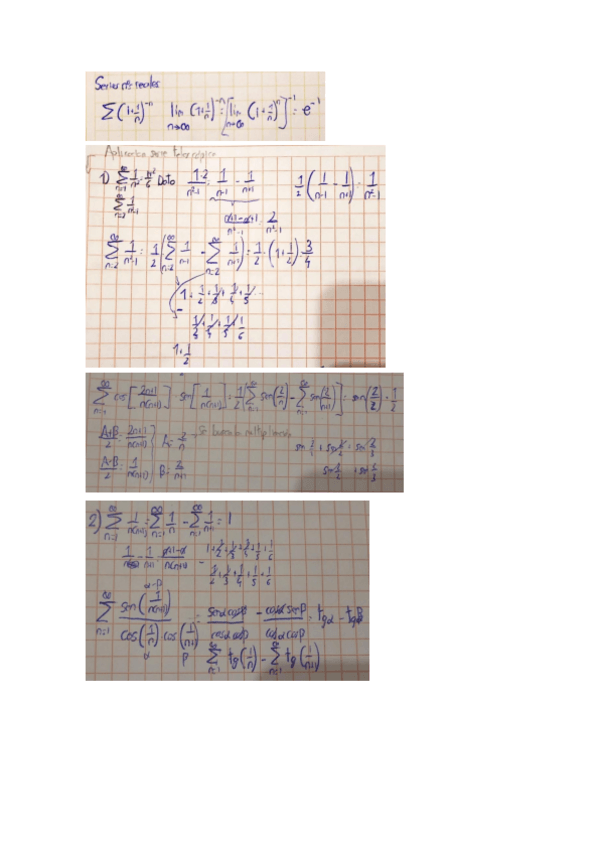 Series nº reales
∑(1+1/n)^-n lim n→∞ (1+1/n)^-n = [lim n→∞ (1+1/n)^n]^-1 = e^-1
Aplicamos serie telescópica
1) ∑ n=1 ∞ 1/n² = π²/6 Dato 1·2/n²-1 = 1/n-1 - 1/n+1 1/2 (1/n-1 - 1/n+1) = 1/n²-1
∑ n=2 ∞ 1/n²-1
n+1-n+1/n²-1 = 2/n²-1
∑ n=2 ∞ 1/n²-1 = 1/2 (∑ n=2 ∞ 1/n-1 - ∑ n=2 ∞ 1/n+1) = 1/2 · (1+1/2) = 3/4
1 + 1/2 + 1/3 + 1/4 + 1/5
-
1/3 + 1/4 + 1/5 + 1/6
1 + 1/2
∑ n=1 ∞ cos[2n+1/n(n+1)] · sen[1/n(n+1)] = 1/2 [∑ n=1 ∞ sen(2/n) - ∑ n=1 ∞ sen(2/n+1)] =
A+B/2 = 2n+1/n(n+1) } A = 2/n
A-B/2 = 1/n(n+1) } B = 2/n+1
2) ∑ n=1 ∞ 1/n(n+1) = ∑ n=1 ∞ 1/n - ∑ n=1 ∞ 1/n+1 = 1
1/n - 1/n+1 = n+1-n/n(n+1)
1 + 1/2 + 1/3 + 1/4 + 1/5 + 1/6
-
1/2 + 1/3 + 1/4 + 1/5 + 1/6
α-β
∑ n=1 ∞ sen(1/n(n+1))/cos(1/n) cos(1/n+1) = senα cosβ/cosα cosβ - cosα senβ/cosα cosβ = tgα - tgβ
α β
∑ n=1 ∞ tg(1/n) - ∑ n=1 ∞ tg(1/n+1)